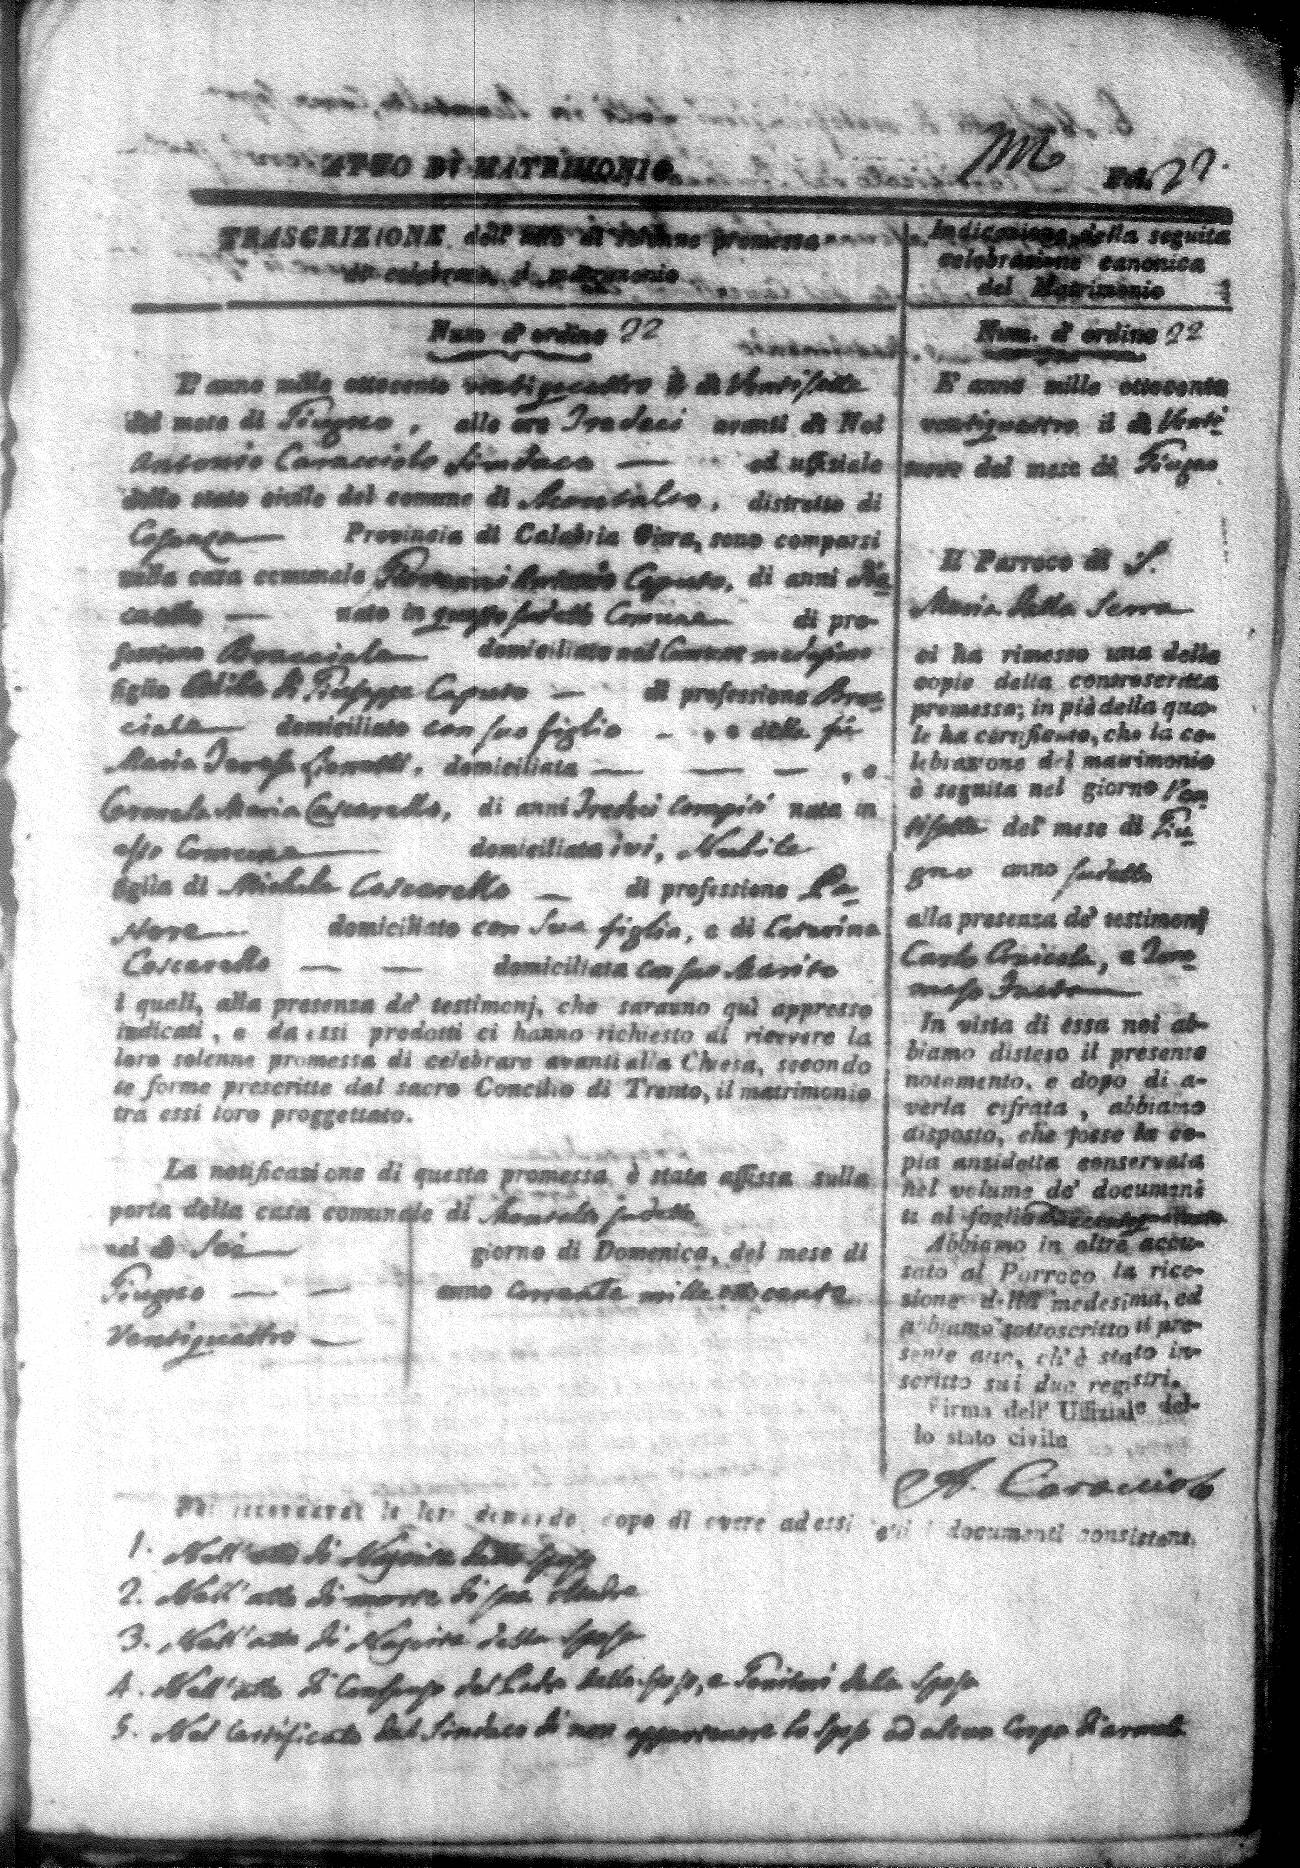 ATTO DI MATRIMONIO.
Fol. 22.
TRASCRIZIONE dell' atto di solenne promessa
di celebrare il matrimonio
Num d' ordine 22
L' anno mille ottocento ventiquattro il di Ventisette
del mese di Giugno, alle ore Tredeci avanti di Noi
Antonio Caracciolo Sindaco — ed uffiziale
dello stato civile del comune di Montalto, distretto di
Cosenza — Provincia di Calabria Citra, sono comparsi
nella casa comunale Giovanni Antonio Caputo, di anni
— nato in questo sudetto Comune — di pro-
fessione Bracciale — domiciliato nel Comune medesimo
figlio di Giuseppe Caputo — di professione Brac-
ciale — domiciliato con suo figlio — , e della fu
Maria Teresa , domiciliata — — — , e
Carmela Maria Coscarello, di anni Tredeci compiti nata in
esso Comune — domiciliata ivi, Nubile
figlia di Michele Coscarello — di professione
— domiciliato con Sua figlia, e di Caterina
Coscarello — — domiciliata con suo Marito
i quali, alla presenza de' testimonj, che saranno quì appresso
indicati, e da essi prodotti ci hanno richiesto di ricevere la
loro solenne promessa di celebrare avanti alla Chiesa, secondo
le forme prescritte dal sacro Concilio di Trento, il matrimonio
tra essi loro proggettato.
La notificazione di questa promessa è stata affissa sulla
porta della casa comunale di Montalto sudetto
nel di Sei — giorno di Domenica, del mese di
Giugno — — anno corrente mille ottocento
Ventiquattro —
Indicazione della seguita
celebrazione canonica
del Matrimonio
Num. d' ordine 22
L' anno mille ottocento
ventiquattro il di Venti-
nove del mese di Giugno
Il Parroco di S.
Maria della Serra
ci ha rimesso una delle
copie della controscritta
promessa; in piè della qua-
le ha certificato, che la ce-
lebrazione del matrimonio
è seguita nel giorno Ven-
tisette del mese di Giu-
gno anno sudetto
alla presenza de' testimonj
Carlo , e Tom-
maso
In vista di essa noi ab-
biamo disteso il presente
notamento, e dopo di a-
verla cifrata, abbiamo
disposto, che fosse la co-
pia anzidetta conservata
nel volume de' documen-
ti al foglio
Abbiamo in oltre accu-
sato al Parroco la rice-
zione della medesima, ed
abbiamo sottoscritto il pre-
sente atto, ch' è stato in-
scritto sui due registri.
Firma dell' Uffiziale del-
lo stato civile
A. Caracciolo
Noi secondando la loro domanda, dopo di avere ad essi letti i documenti consistenti
1. Nell' atto di Nascita dello Sposo
2. Nell' atto di morte di sua Madre
3. Nell' atto di Nascita della Sposa
4. Nell' atto di Consenso del Padre dello Sposo, e Genitori della Sposa
5. Nel Certificato del Sindaco di non appartenere lo Sposo ad alcun Corpo d'armata